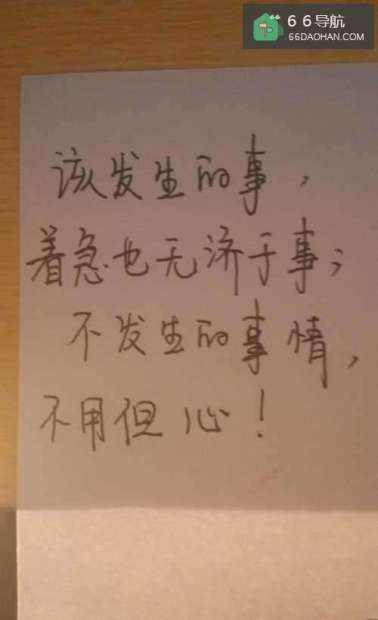 66导航
66DAOHAN.COM
该发生的事，
着急也无济于事；
不发生的事情，
不用但心！